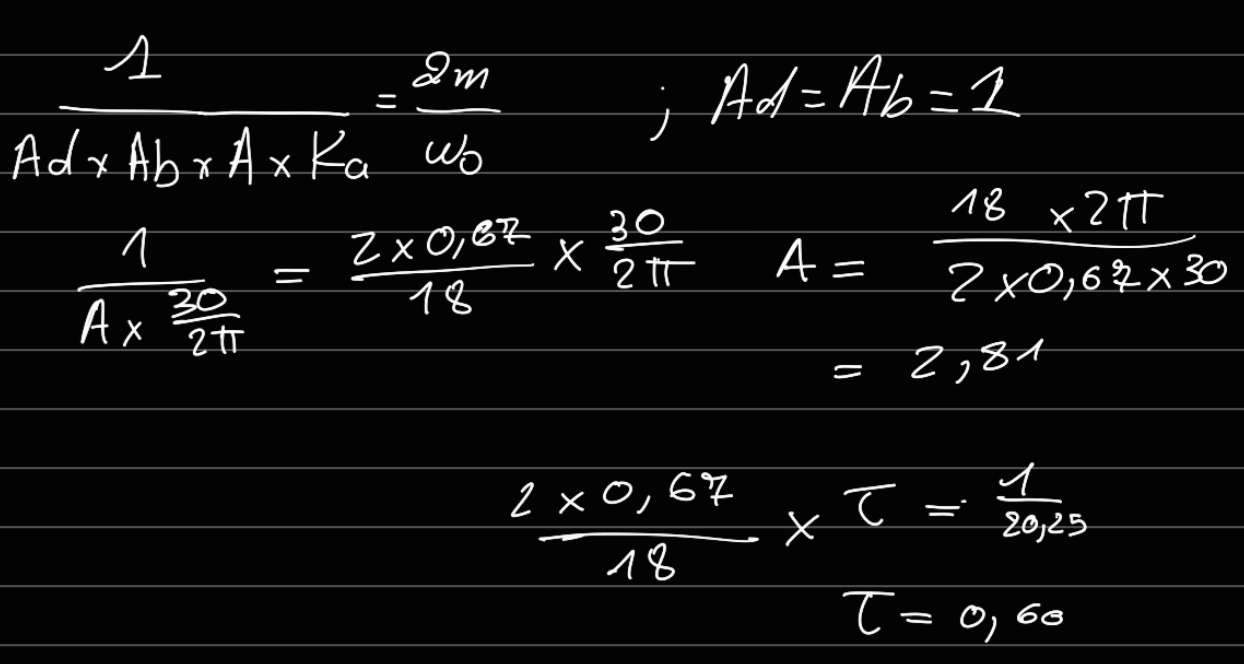 1/(Ad x Ab x A x Ka) = 2m/ω₀ ; Ad = Ab = 1
1/(A x 30/2π) = (2 x 0,67)/18 x 30/2π A = (18 x 2π)/(2 x 0,67 x 30)
= 2,81
(2 x 0,67)/18 x τ = 1/20,25
τ = 0,60